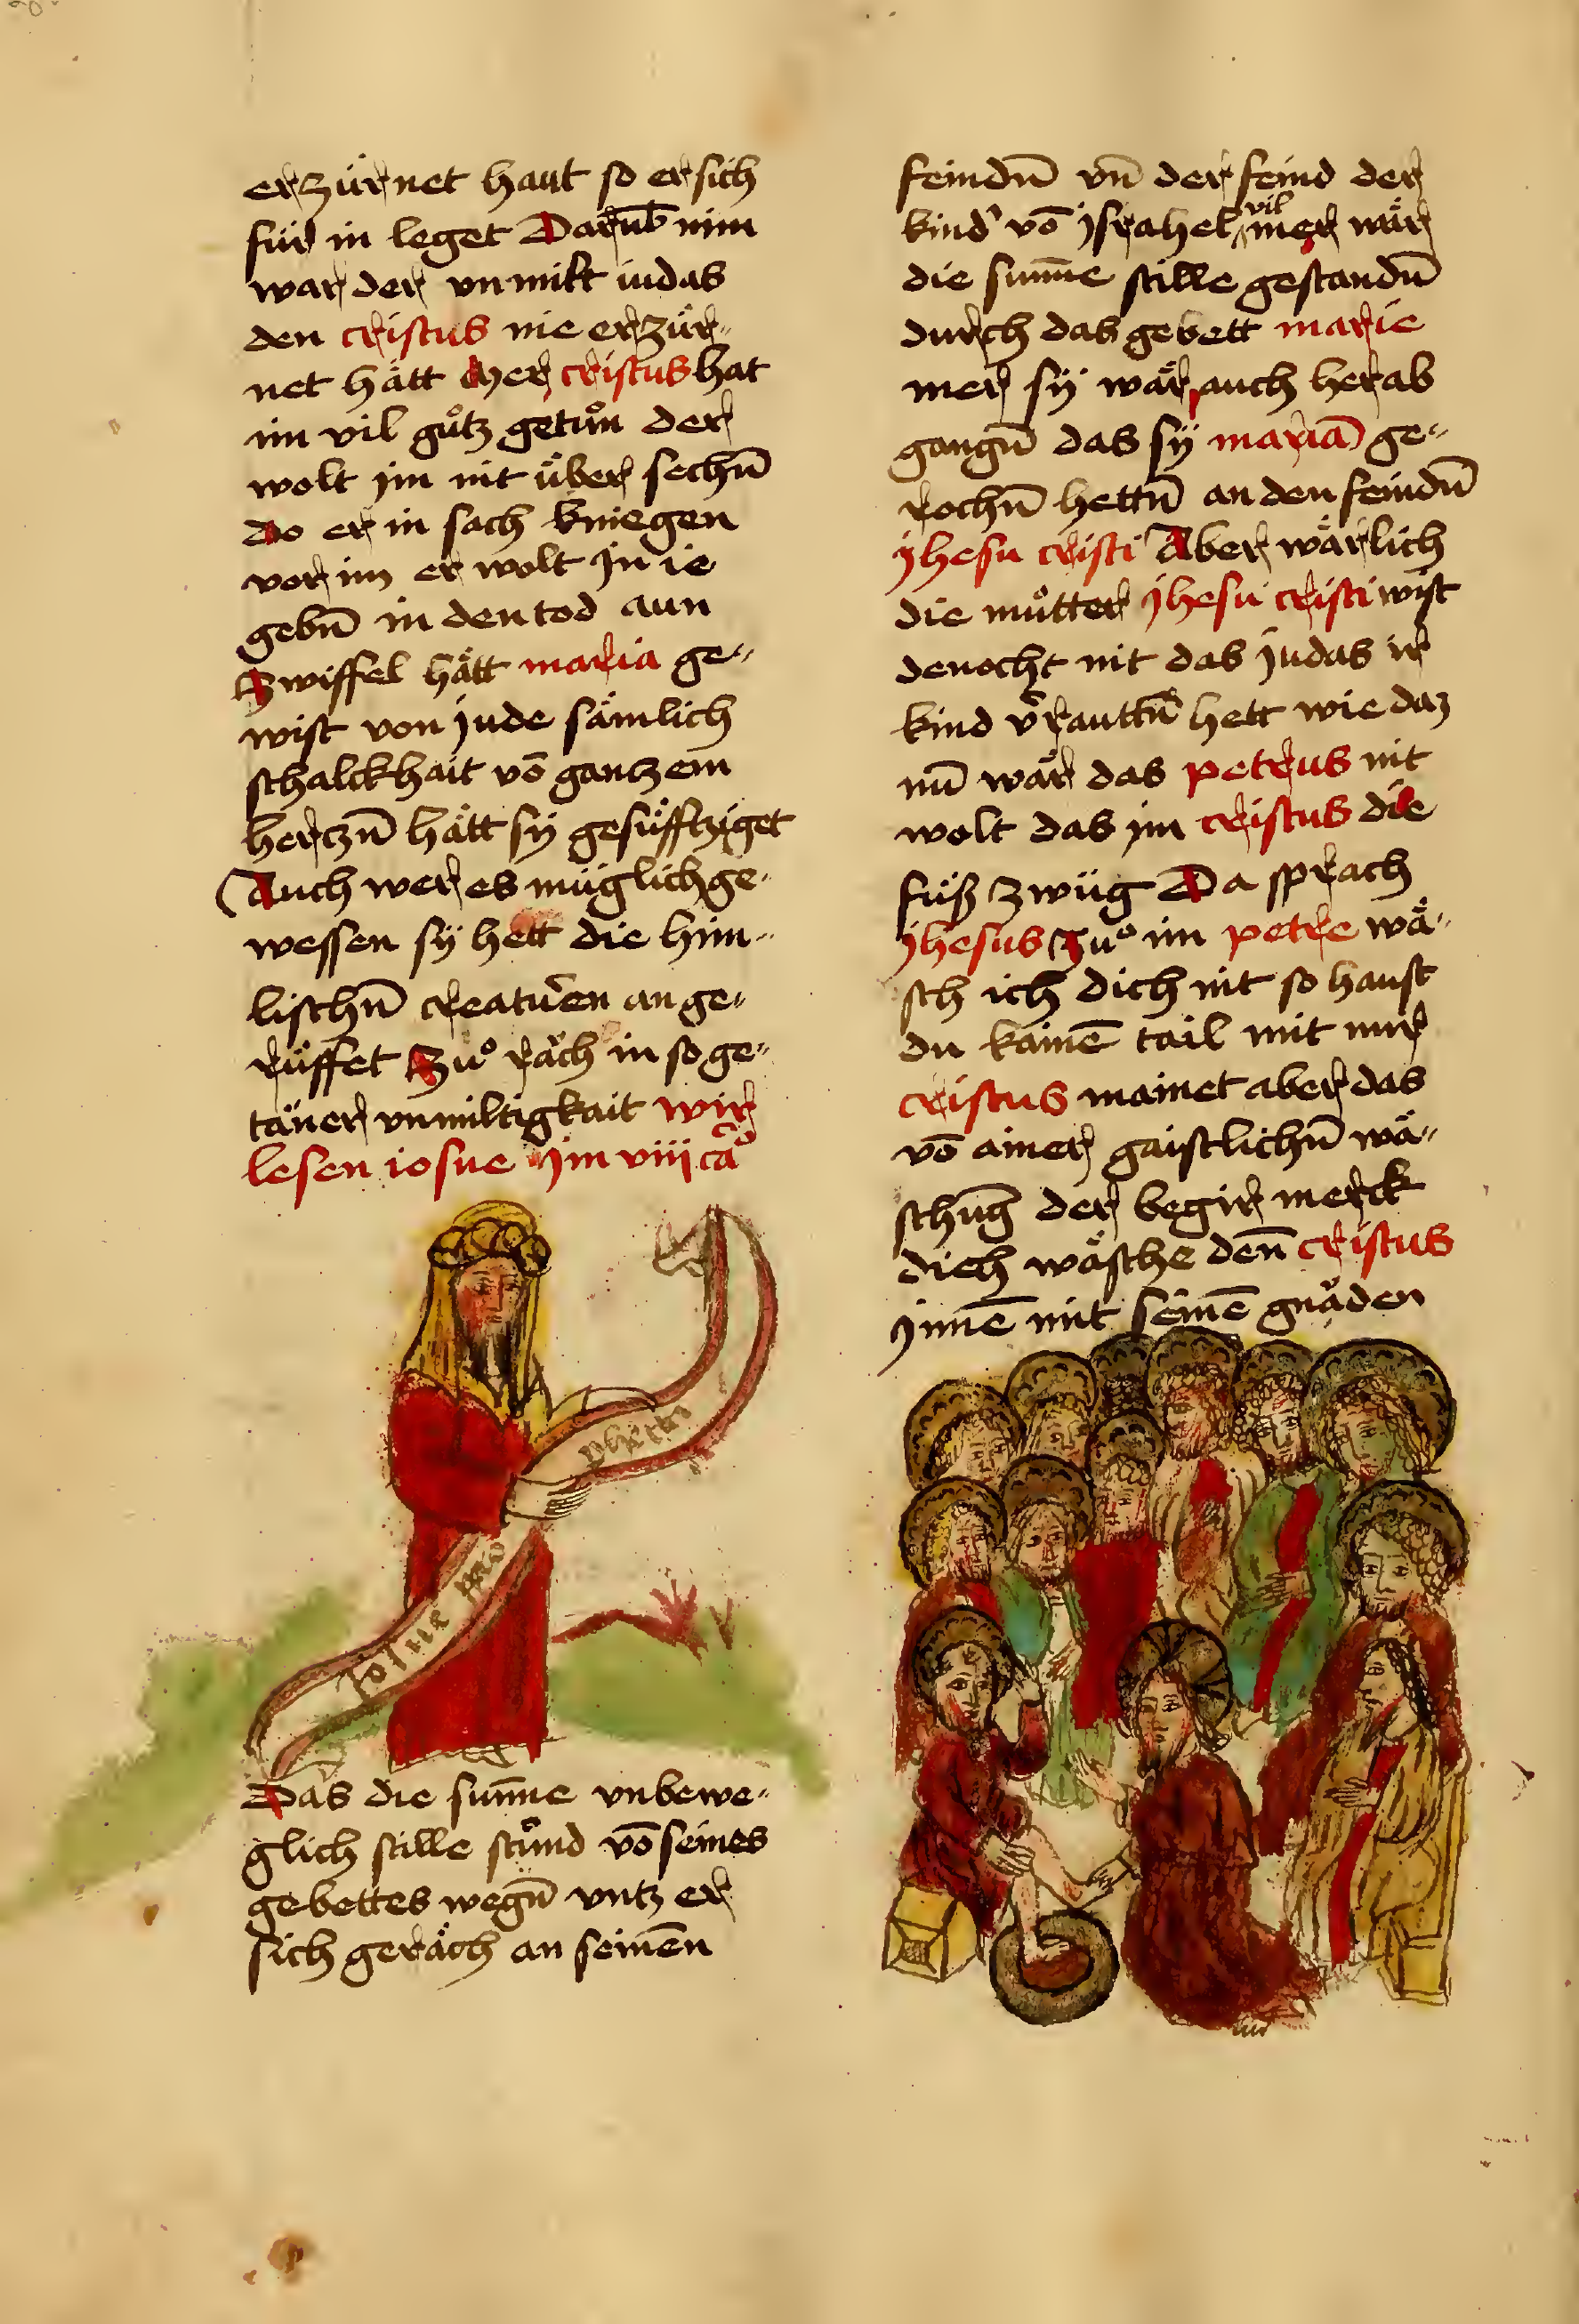 erzürnet haut so er sich
für in leget Darūb nim
war der vnmilt iudas
den cristus nie erzür„
net hätt Mer cristus hat
im vil gůtz getůn der
wolt jm nit über sechn̄
do er in sach kniegen
vor im er wolt jn ie
gebn̄ in den tod aun
Zwiffel hätt maria ge„
wist von jude sämlich
schalckhait vō ganczem
herczn̄ hätt sÿ gesüfftziget
Auch wer es müglich ge„
wessen sÿ hett die him„
lischn̄ creaturen an ge„
rüffet Zuͦ räch in so ge„
täner vnmiltigkait wir
lesen iosue jm viij ca͞
Josue pro
pheta
Das die sun̄ne vnbewe„
glich stille stůnd vō seines
gebettes wegn̄ vntz er
sich geräch an seinen̄
feindn̄ vn̄ der feind der
kind' vō jsrahel vil mer wär
die sum̄e stille gestandn̄
durch das gebett marie
mer sÿ wär auch herab
gangn̄ das sÿ mariā ge„
rochn̄ hettn̄ an den feindn̄
jhesu cristi Aber wärlich
die můtter jhesu cristi wist
denocht nit das judas ir
kind v̄rauttn̄ hett wie daz
nū wär das petrus nit
wolt das jm cristus die
füß zwüg Da sprach
jhesus Zuͦ im petre wä„
sch ich dich nit so haust
du kainē tail mit mir
cristus mainet aber das
vō ainer gaistlichn̄ wä„
schūg der begir merck
dich wäsche den̄ cristus
jnnē mit seinē gnäden